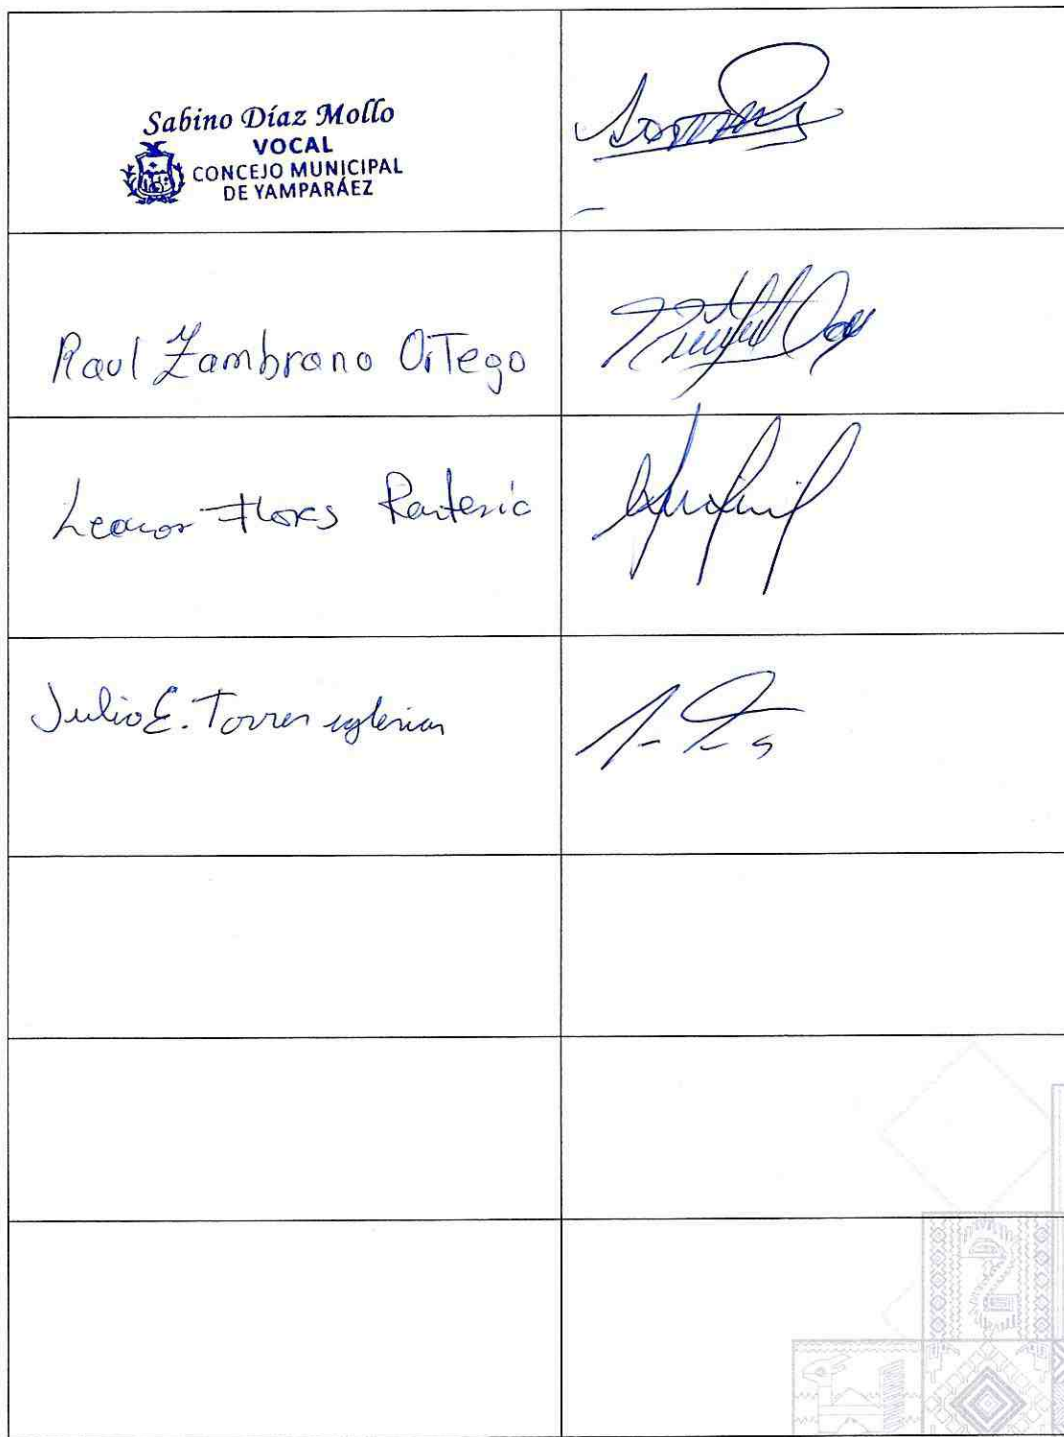 Sabino Díaz Mollo
VOCAL
CONCEJO MUNICIPAL
DE YAMPARÁEZ
Raul Zambrano OrTego
Leonor Flores
Julio E. Torres iglesias